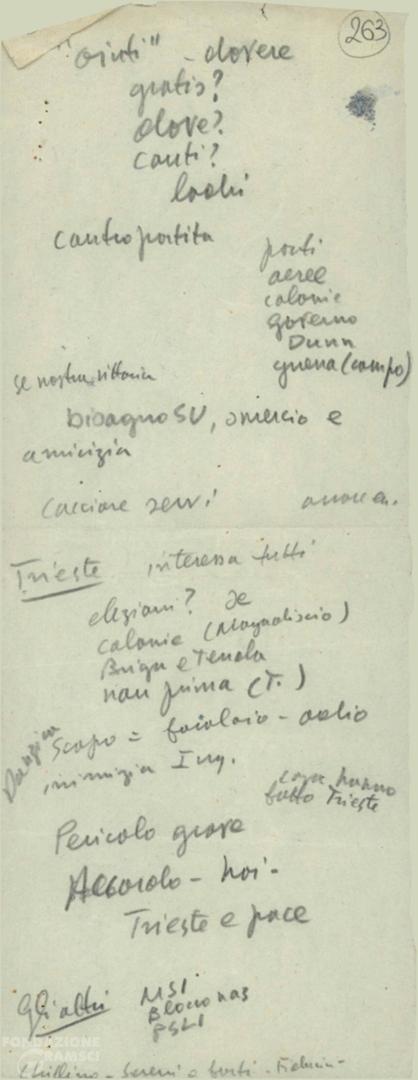 263
"aiuti" - dovere
gratis?
dove?
conti?
contropartita
porti
aeree
colonie
governo
Dunn
guerra (campo)
se nostra vittoria
bisogno SU, omercio e
amicizia
cacciare servi
Trieste interessa tutti
elezioni? se
colonie (Mogadiscio)
Briga e Tenda
non prima (T.)
Danzica
Scopo = focolaio - odio
inimizia Ing.
cosa hanno
fatto Trieste
Pericolo grave
Accordo - noi -
Trieste e pace
Gli altri
MSI
Blocco naz
PSLI
FONDAZIONE
GRAMSCI